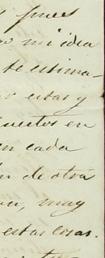 y pues
mi idea
te estima-
estas y
puestos en
en cada
de otra
muy
estas cosas.